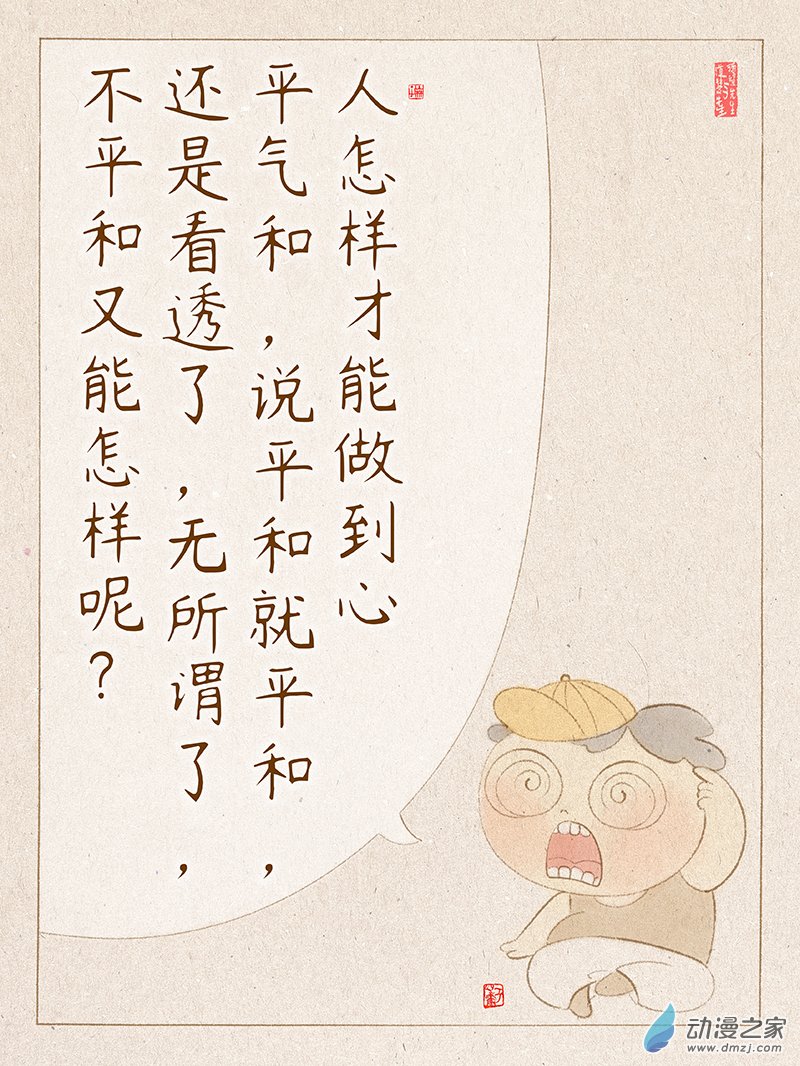 人怎样才能做到心
平气和，说平和就平和，
还是看透了，无所谓了，
不平和又能怎样呢？
动漫之家
www.dmzj.com